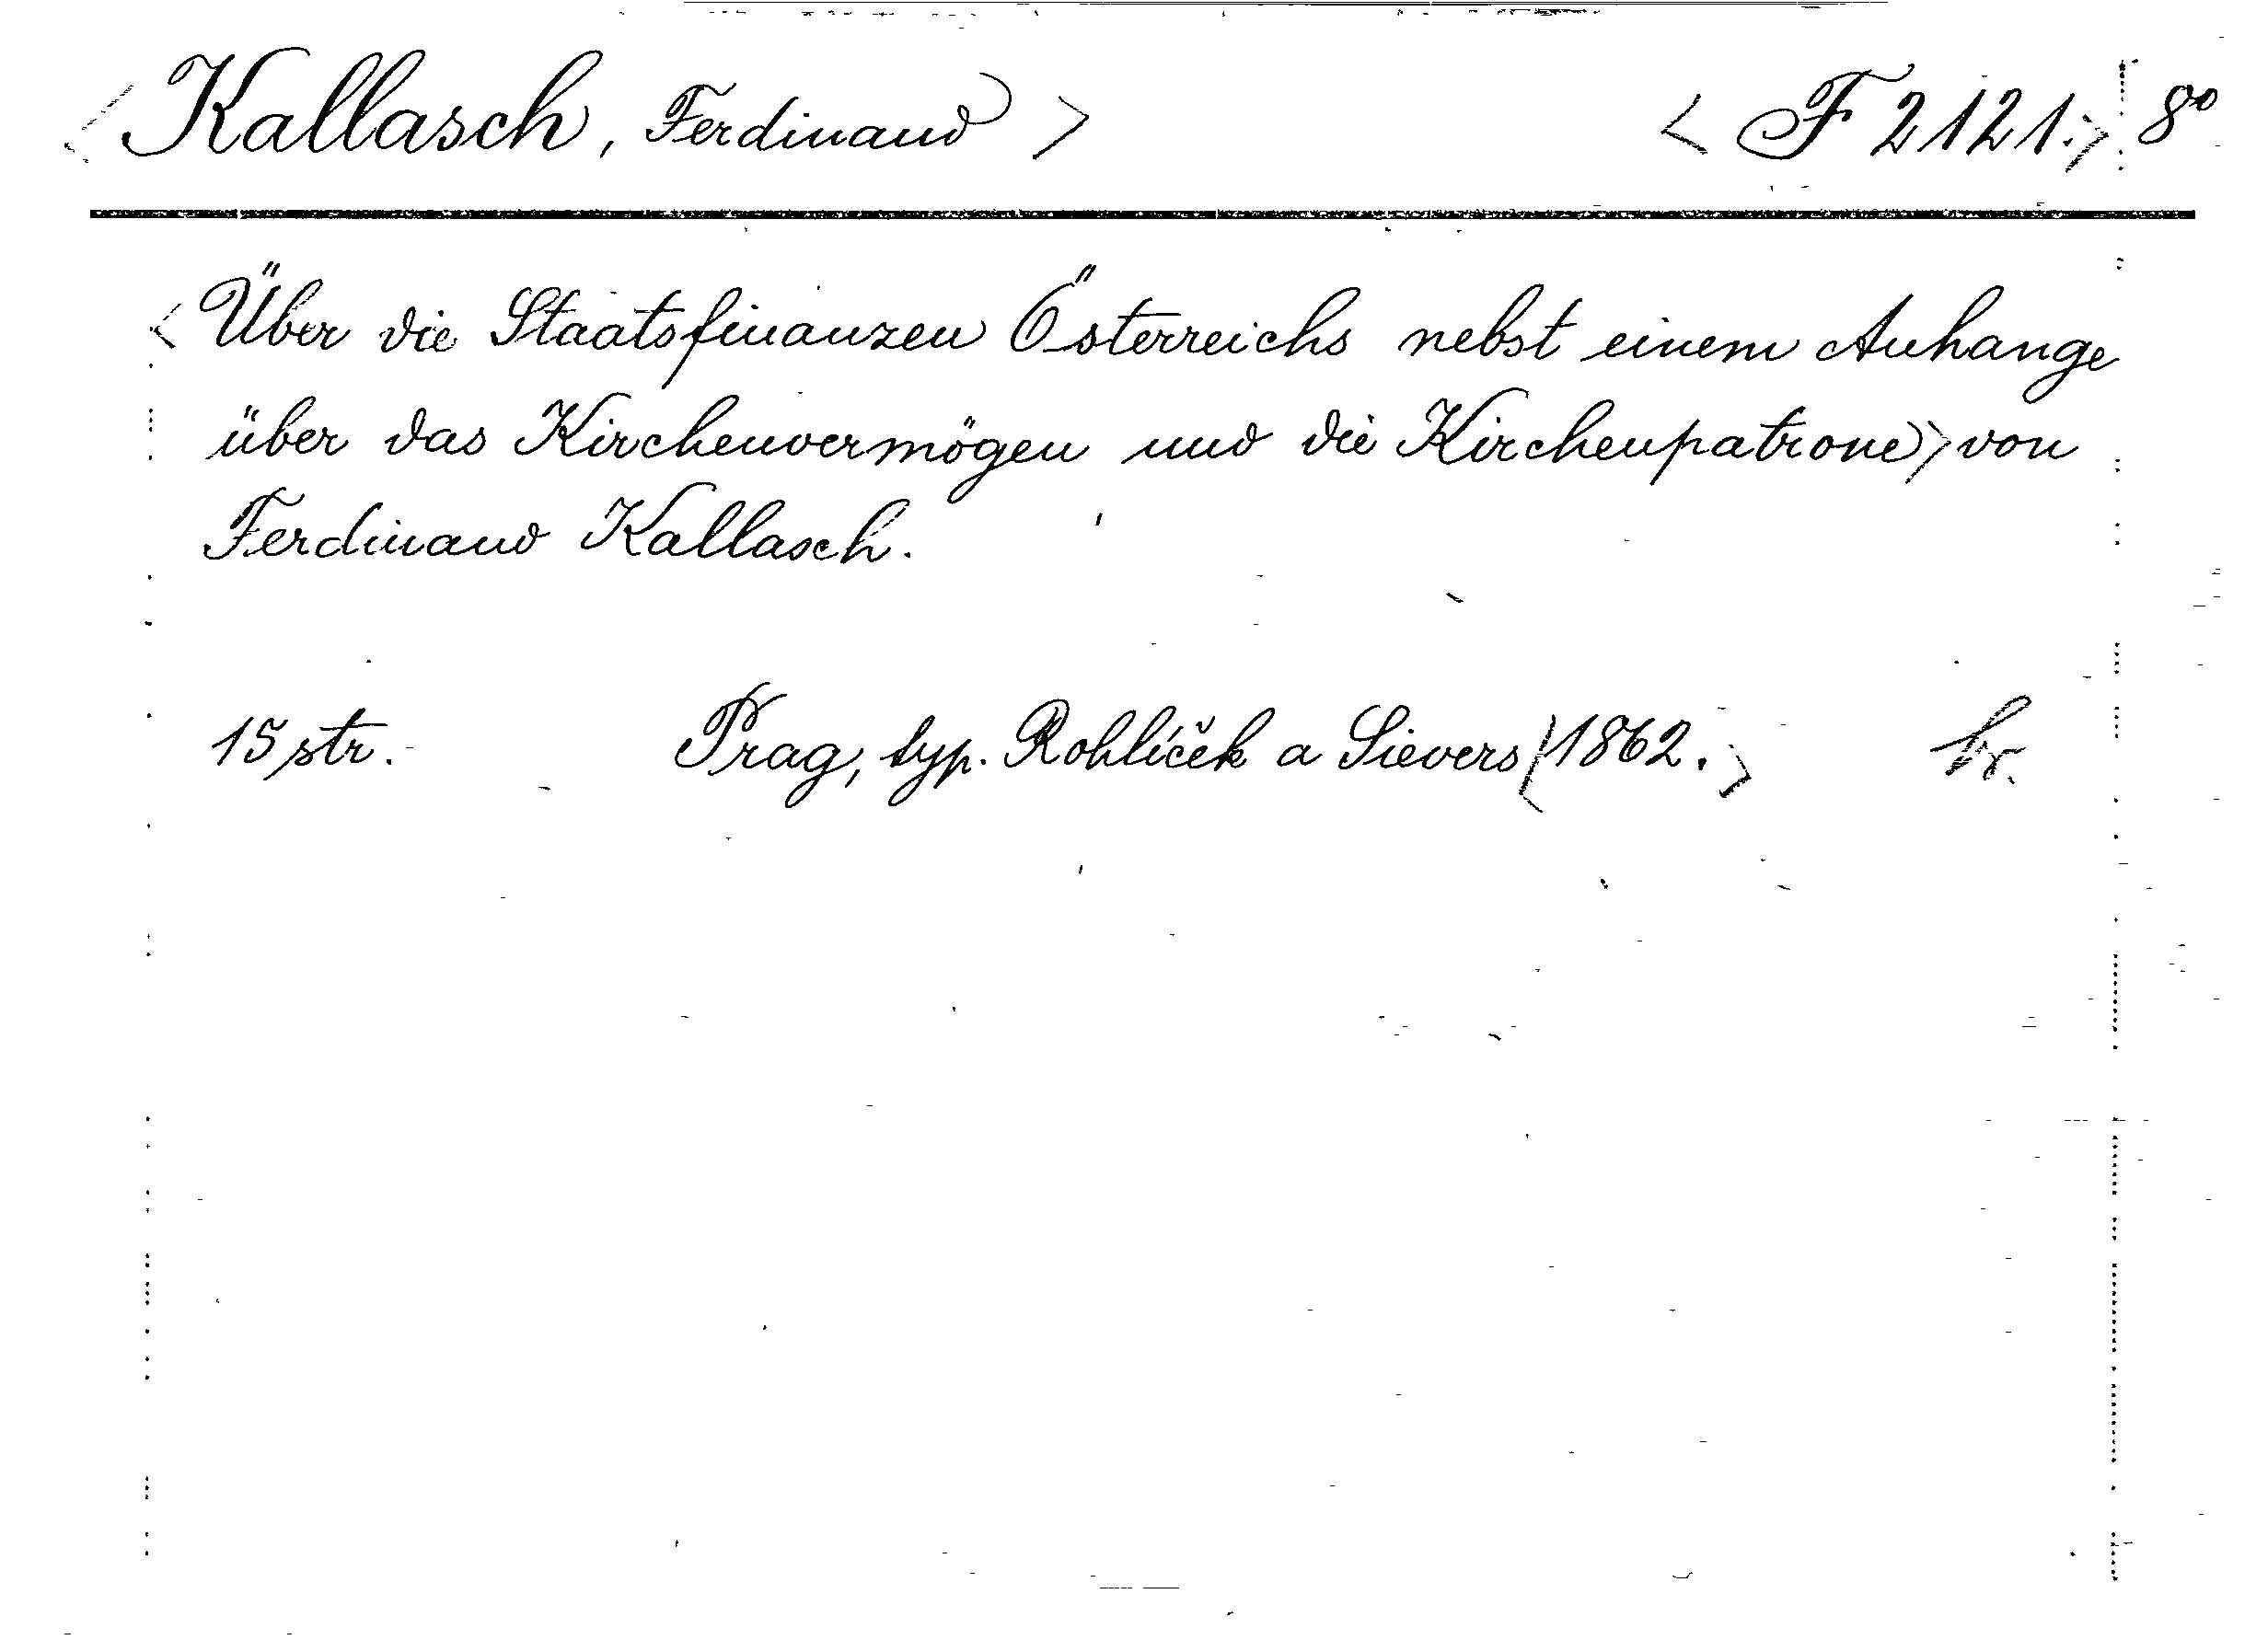 <Kallasch, Ferdinand> <F 2121.> 8°
<Über die Staatsfinanzen Österreichs nebst einem Anhange
über das Kirchenvermögen und die Kirchenpatrone> von
Ferdinand Kallasch.
15 str. Prag, typ. Rohlíček a Sievers <1862.> br.